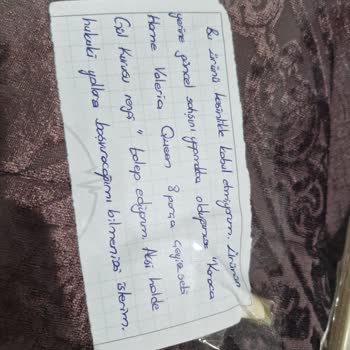 Bu ürünü kesinlikle kabul etmiyorum. Ürünün
yerine güncel satışını yapmakta olduğunuz "Karaca
Home Valeria Queen 8 parça Çeyiz seti
Gül Kurusu rengi" talep ediyorum Aksi halde
hukuki yollara başvuracağımı bilmenizi isterim.